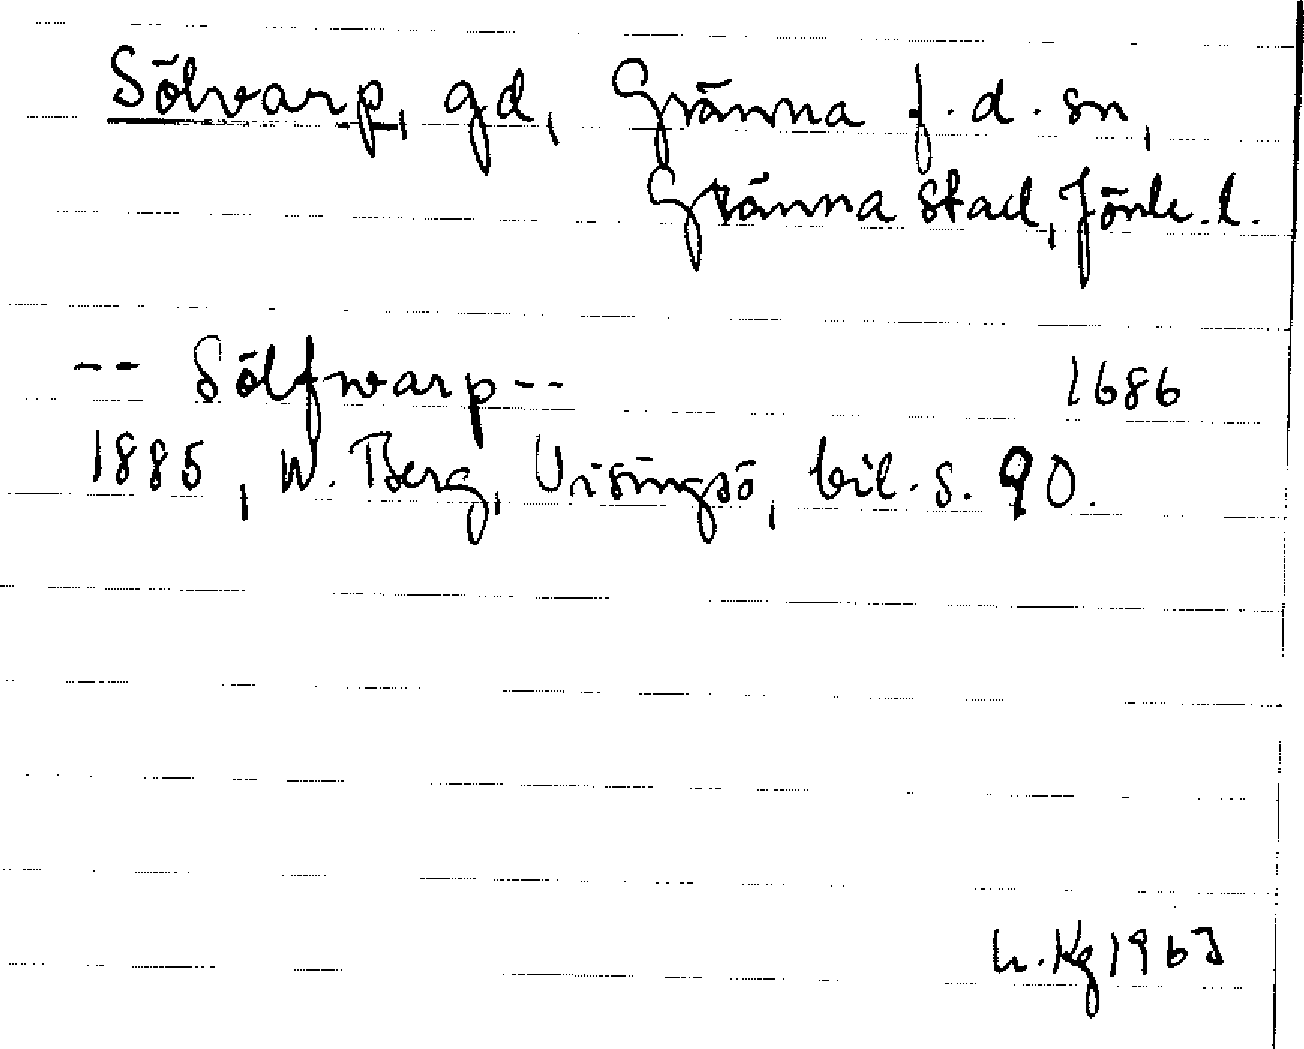 Sölvarp, gd, Gränna f.d. sn,
Gränna stad, Jönk. l.
-- Sölfwarp -- 1686
1885, W. Berg, Visingsö, bil. s. 90.